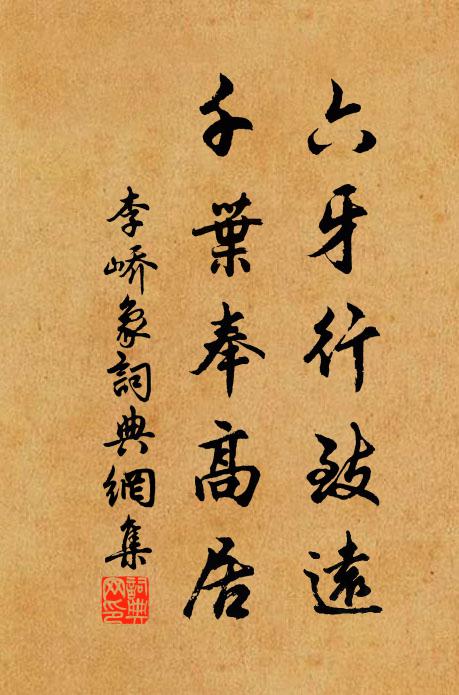 六牙行致遠
千葉奉高居
李嶠象詞典網集
詞典网印